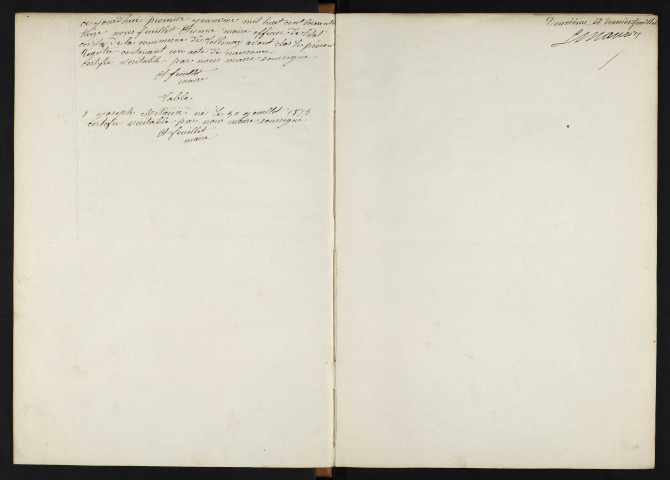 ce jourd'hui premier janvier mil huit cent soixante
nous feuillet maire officier de l'état
civil de la commune de avons clos le présent
Registre contenant un acte de naissance
certifié véritable par nous maire soussigné
feuillet
maire
Table
1 Joseph né le 30 juillet 1873
certifié véritable par nous maire soussigné
feuillet
maire
Deuxième et dernier feuillet